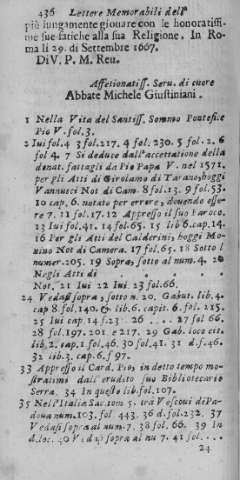 436 Lettere Memorabili dell'
più lungamente giouare con le honoratissi-
me sue fatiche alla sua Religione. In Ro-
ma li 29. di Settembre 1667.
Di V. P. M. Reu.
Affetionatiss. Seru. di cuore
Abbate Michele Giustiniani.
1 Nella Vita del Santiss. Sommo Pontefice
Pio V. fol. 3.
2 Iui fol. 4 3 fol. 217. 4 fol. 230. 5 fol. 2. 6
fol 4. 7 Si deduce dall'accettatione della
donat. fattagli da Pio Papa V. nel 1571.
per gli Atti di Girolamo di Tarano, hoggi
Vannucci Not di Cam. 8 fol. 13. 9 fol. 53.
10 cap. 6. notato per errore, douendo esse-
re 7. 11 fol. 17. 12 Appresso il suo Paroco.
13 Iui fol. 41. 14 fol. 65. 15 lib 6. cap. 14.
16 Per gli Atti del Calderini, hoggi Mo-
uino Not di Camera. 17 fol. 65. 18 Sotto l
numer. 205. 19 Sopra, sotto al num. 4. 20
Negli Atti di
Not, 21 Iui 22 Iui 23 fol. 66.
24 Vedasi sopra, sotto n. 20. Gabut. lib. 4.
cap 8 fol. 140. & lib. 6. capit. 6. fol. 215.
25 Iui cap 14. f. 231 26 .... 27 fol 66.
28 fol. 197. 201. e 217. 29 Gab. loco cit.
lib. 2. cap. 1 fol. 46. 30 fol. 41. 31 d. f. 46.
32 lib. 3. cap. 6. f 97.
33 Appresso il Card. Pio, in detto tempo mo-
stratimi dall'erudito suo Bibliotecario
Serra. 34 In questo lib. fol. 107.
35 Nell'Italia Sac. tom 5. tra Vescoui di Pa-
doua num. 103. fol 443. 36 d. fol. 232. 37
Vedasi sopra al num. 7. 38 fol. 66. 39 In
d. loc. 40 V. di sopra al nu 7. 41 fol. ....
24